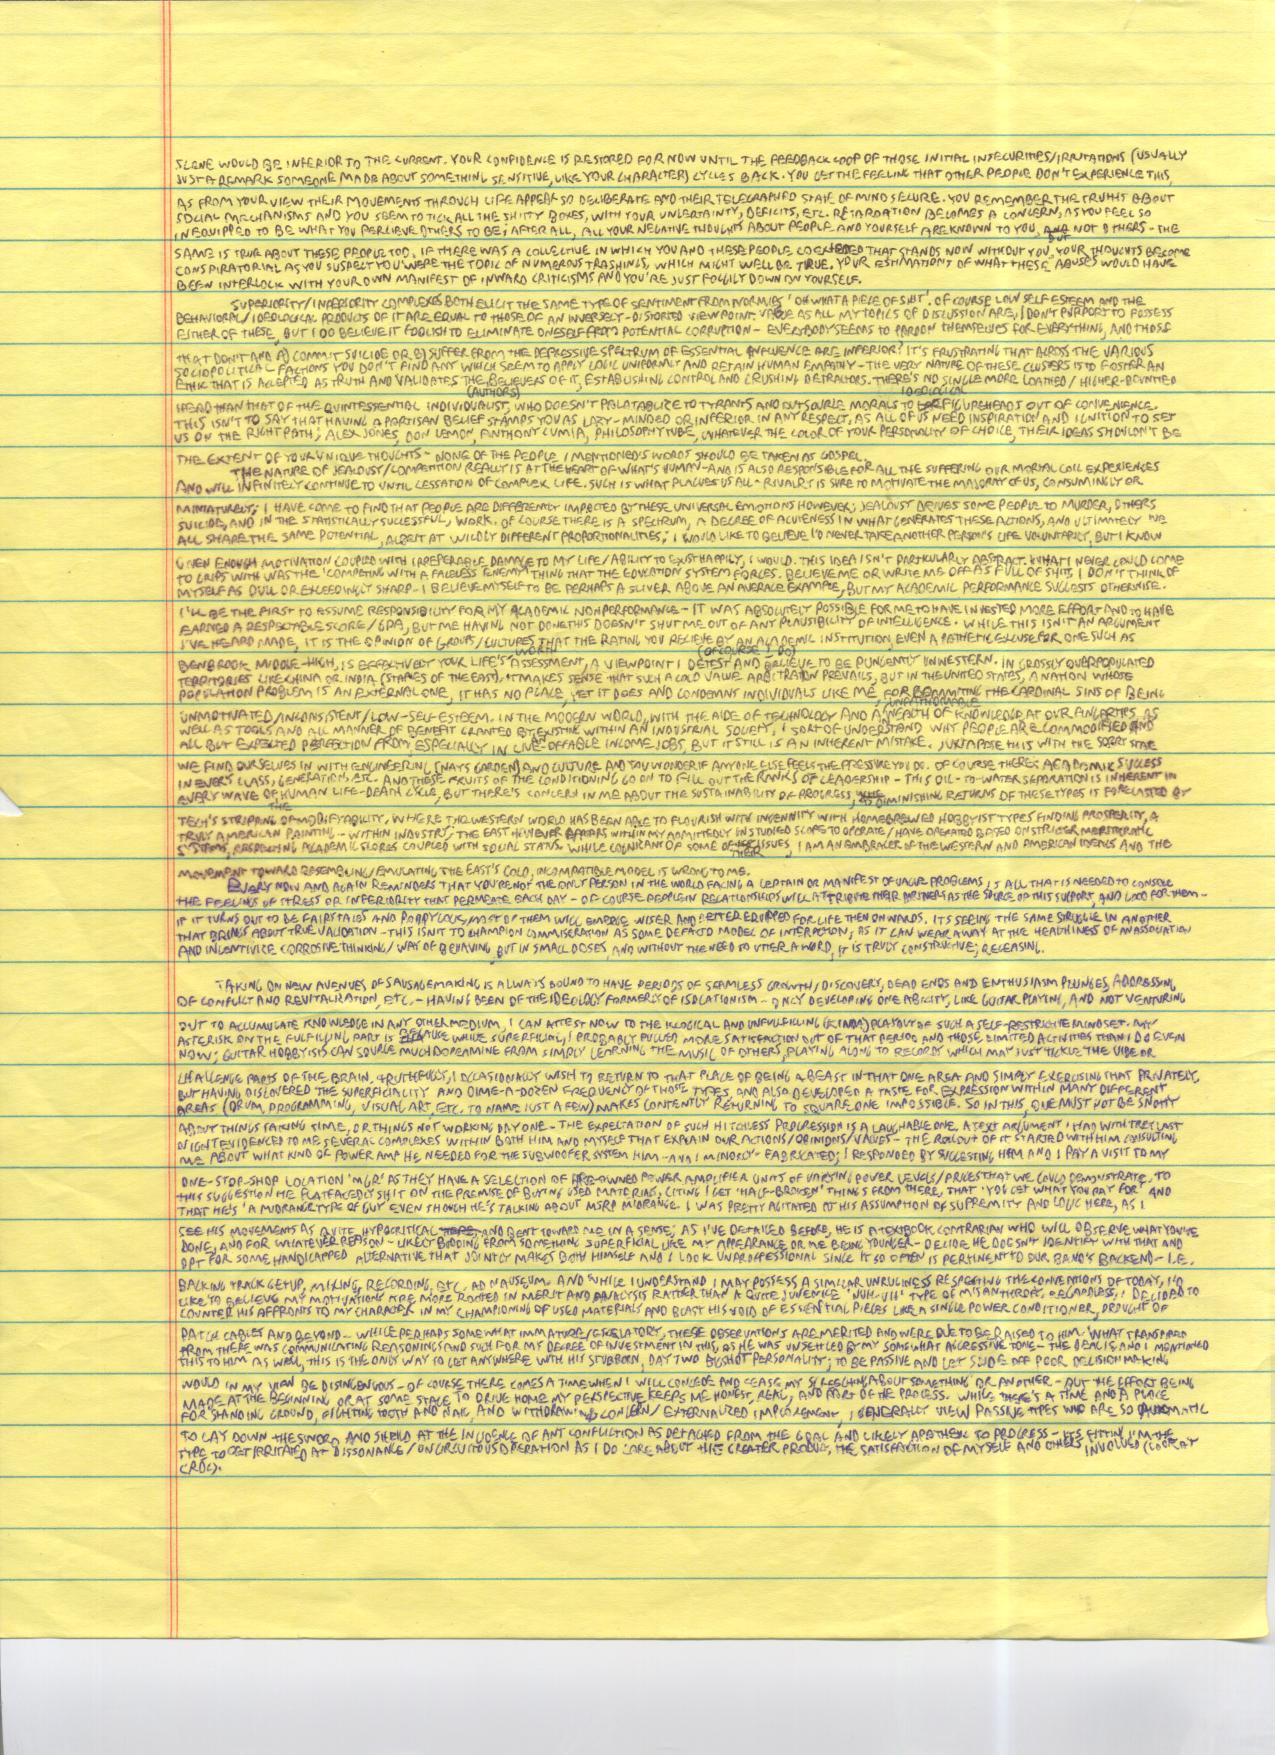 SCENE WOULD BE INFERIOR TO THE CURRENT. YOUR CONFIDENCE IS RESTORED FOR NOW UNTIL THE FEEDBACK LOOP OF THOSE INITIAL INSECURITIES/IRRITATIONS (USUALLY
JUST A REMARK SOMEONE MADE ABOUT SOMETHING SENSITIVE, LIKE YOUR CHARACTER) CYCLES BACK. YOU GET THE FEELING THAT OTHER PEOPLE DON'T EXPERIENCE THIS,
AS FROM YOUR VIEW THEIR MOVEMENTS THROUGH LIFE APPEAR SO DELIBERATE AND THEIR TELEGRAPHED STATE OF MIND SECURE. YOU REMEMBER THE TRUTHS ABOUT
SOCIAL MECHANISMS AND YOU SEEM TO TICK ALL THE SHITTY BOXES, WITH YOUR UNCERTAINTY, DEFICITS, ETC. RETARDATION BECOMES A CONCERN, AS YOU FEEL SO
INEQUIPPED TO BE WHAT YOU PERCIEVE OTHERS TO BE; AFTER ALL, ALL YOUR NEGATIVE THOUGHTS ABOUT PEOPLE AND YOURSELF ARE KNOWN TO YOU, BUT NOT OTHERS - THE
SAME IS TRUE ABOUT THESE PEOPLE TOO. IF THERE WAS A COLLECTIVE IN WHICH YOU AND THESE PEOPLE THAT STANDS NOW WITHOUT YOU, YOUR THOUGHTS BECOME
CONSPIRATORIAL AS YOU SUSPECT YOU WERE THE TOPIC OF NUMEROUS TRASHINGS, WHICH MIGHT WELL BE TRUE. YOUR ESTIMATIONS OF WHAT THESE ABUSES WOULD HAVE
BEEN INTERLOCK WITH YOUR OWN MANIFEST OF INWARD CRITICISMS AND YOU'RE JUST FOGGILY DOWN ON YOURSELF.
SUPERIORITY/INFERIORITY COMPLEXES BOTH ELICIT THE SAME TYPE OF SENTIMENT FROM NORMIES 'OH WHAT A PIECE OF SHIT'. OF COURSE LOW SELF ESTEEM AND THE
BEHAVIORAL/IDEOLOGICAL PRODUCTS OF IT ARE EQUAL TO THOSE OF AN INVERSELY-DISTORTED VIEWPOINT. VAGUE AS ALL MY TOPICS OF DISCUSSION ARE, I DON'T PURPORT TO POSSESS
EITHER OF THESE, BUT I DO BELIEVE IT FOOLISH TO ELIMINATE ONESELF FROM POTENTIAL CORRUPTION - EVERYBODY SEEMS TO PARDON THEMSELVES FOR EVERYTHING, AND THOSE
THAT DON'T AND A) COMMIT SUICIDE OR B) SUFFER FROM THE DEPRESSIVE SPECTRUM OF ESSENTIAL INFLUENCE ARE INFERIOR? IT'S FRUSTRATING THAT ACROSS THE VARIOUS
SOCIOPOLITICAL FACTIONS YOU DON'T FIND ANY WHICH SEEM TO APPLY LOGIC UNIFORMLY AND RETAIN HUMAN EMPATHY - THE VERY NATURE OF THESE CLUSTERS IS TO FOSTER AN
ETHIK THAT IS ACCEPTED AS TRUTH AND VALIDATES THE BELIEVERS OF IT, ESTABLISHING CONTROL AND CRUSHING DETRACTORS. THERE'S NO SINGLE MORE LOATHED / HIGHER-BOUNTIED
(AUTHORS) IDEOLOGICAL
HEAD THAN THAT OF THE QUINTESSENTIAL INDIVIDUALIST, WHO DOESN'T PALATABLIZE TO TYRANTS AND OUTSOURCE MORALS TO FIGUREHEADS OUT OF CONVENIENCE.
THIS ISN'T TO SAY THAT HAVING A PARTISAN BELIEF STAMPS YOU AS LAZY-MINDED OR INFERIOR IN ANY RESPECT, AS ALL OF US NEED INSPIRATION AND IGNITION TO SET
US ON THE RIGHT PATH; ALEX JONES, DON LEMON, ANTHONY CUMIA, PHILOSOPHYTUBE, WHATEVER THE COLOR OF YOUR PERSONALITY OF CHOICE, THEIR IDEAS SHOULDN'T BE
THE EXTENT OF YOUR UNIQUE THOUGHTS - NONE OF THE PEOPLE I MENTIONED'S WORDS SHOULD BE TAKEN AS GOSPEL.
THE NATURE OF JEALOUSY/COMPETITION REALLY IS AT THE HEART OF WHAT'S HUMAN - AND IS ALSO RESPONSIBLE FOR ALL THE SUFFERING OUR MORTAL COIL EXPERIENCES
AND WILL INFINITELY CONTINUE TO UNTIL CESSATION OF COMPLEX LIFE. SUCH IS WHAT PLAGUES US ALL - RIVALRY IS SURE TO MOTIVATE THE MAJORITY OF US, CONSUMINGLY OR
MINIATURELY; I HAVE COME TO FIND THAT PEOPLE ARE DIFFERENTLY IMPACTED BY THESE UNIVERSAL EMOTIONS HOWEVER; JEALOUSY DRIVES SOME PEOPLE TO MURDER, OTHERS
SUICIDE, AND IN THE STATISTICALLY SUCCESSFUL, WORK. OF COURSE THERE IS A SPECTRUM, A DEGREE OF ACUTENESS IN WHAT GENERATES THESE ACTIONS, AND ULTIMATELY WE
ALL SHARE THE SAME POTENTIAL, ALBEIT AT WILDLY DIFFERENT PROPORTIONALITIES; I WOULD LIKE TO BELIEVE I'D NEVER TAKE ANOTHER PERSON'S LIFE VOLUNTARILY, BUT I KNOW
GIVEN ENOUGH MOTIVATION COUPLED WITH IRREPERABLE DAMAGE TO MY LIFE/ABILITY TO EXIST HAPPILY, I WOULD. THIS IDEA ISN'T PARTICULARLY ABSTRACT. WHAT I NEVER COULD COME
TO GRIPS WITH WAS THE 'COMPETING WITH A FACELESS ENEMY' THING THAT THE EDUCATION SYSTEM FORCES. BELIEVE ME OR WRITE ME OFF AS FULL OF SHIT, I DON'T THINK OF
MYSELF AS DULL OR EXCEEDINGLY SHARP - I BELIEVE MYSELF TO BE PERHAPS A SLIVER ABOVE AN AVERAGE EXAMPLE, BUT MY ACADEMIC PERFORMANCE SUGGESTS OTHERWISE.
I'LL BE THE FIRST TO ASSUME RESPONSIBILITY FOR MY ACADEMIC NONPERFORMANCE - IT WAS ABSOLUTELY POSSIBLE FOR ME TO HAVE INVESTED MORE EFFORT AND TO HAVE
EARNED A RESPECTABLE SCORE/GPA, BUT ME HAVING NOT DONE THIS DOESN'T SHUT ME OUT OF ANY PLAUSIBILITY OF INTELLIGENCE. WHILE THIS ISN'T AN ARGUMENT
I'VE HEARD MADE, IT IS THE OPINION OF GROUPS/CULTURES THAT THE RATING YOU RECIEVE BY AN ACADEMIC INSTITUTION, EVEN A PATHETIC EXCUSE FOR ONE SUCH AS
WORTH (OF COURSE I DO)
BENBROOK MIDDLE-HIGH, IS EFFECTIVELY YOUR LIFE'S ASSESSMENT, A VIEWPOINT I DETEST AND BELIEVE TO BE PUNGENTLY UNWESTERN. IN GROSSLY OVERPOPULATED
TERRITORIES LIKE CHINA OR INDIA (STAPLES OF THE EAST), IT MAKES SENSE THAT SUCH A COLD VALUE ARBITRATION PREVAILS, BUT IN THE UNITED STATES, A NATION WHOSE
POPULATION PROBLEM IS AN EXTERNAL ONE, IT HAS NO PLACE, YET IT DOES AND CONDEMNS INDIVIDUALS LIKE ME, FOR COMMITTING THE CARDINAL SINS OF BEING
UNFATHOMABLE
UNMOTIVATED/INCONSISTENT/LOW-SELF-ESTEEM. IN THE MODERN WORLD, WITH THE AIDE OF TECHNOLOGY AND A WEALTH OF KNOWLEDGE AT OUR FINGERTIPS AS
WELL AS TOOLS AND ALL MANNER OF BENEFIT GRANTED BY EXISTING WITHIN AN INDUSTRIAL SOCIETY, I SORT OF UNDERSTAND WHY PEOPLE ARE COMMODIFIED AND
ALL BUT EXPECTED PERFECTION FROM, ESPECIALLY IN LIVE-OFFABLE INCOME JOBS, BUT IT STILL IS AN INHERENT MISTAKE. JUXTAPOSE THIS WITH THE SORRY STATE
WE FIND OURSELVES IN WITH ENGINEERING AND CULTURE AND YOU WONDER IF ANYONE ELSE FEELS THE PRESSURE YOU DO. OF COURSE THERE'S ACADEMIC SUCCESS
IN EVERY CLASS, GENERATION, ETC. AND THESE FRUITS OF THE CONDITIONING GO ON TO FILL OUT THE RANKS OF LEADERSHIP - THIS OIL-TO-WATER SEPARATION IS INHERENT IN
EVERY WAVE OF HUMAN LIFE-DEATH CYCLE, BUT THERE'S CONCERN IN ME ABOUT THE SUSTAINABILITY OF PROGRESS, AS DIMINISHING RETURNS OF THESE TYPES IS FORECASTED BY
THE
TECH'S STRIPPING OF MODIFYABILITY. WHERE THE WESTERN WORLD HAS BEEN ABLE TO FLOURISH WITH INGENUITY WITH HOMEBREWED HOBBYIST TYPES FINDING PROSPERITY, A
TRULY AMERICAN PAINTING - WITHIN INDUSTRY, THE EAST HOWEVER APPEARS WITHIN MY ADMITTEDLY UNSTUDIED SCOPE TO OPERATE / HAVE OPERATED BASED ON STRICTER MERITOCRATIC
SYSTEMS, RESPECTING ACADEMIC SCORES COUPLED WITH SOCIAL STATUS. WHILE COGNIZANT OF SOME OF THEIR ISSUES, I AM AN EMBRACER OF THE WESTERN AND AMERICAN IDEALS AND THE
MOVEMENT TOWARD RESEMBLING/EMULATING THE EAST'S COLD, INCOMPATIBLE MODEL IS WRONG TO ME.
EVERY NOW AND AGAIN REMINDERS THAT YOU'RE NOT THE ONLY PERSON IN THE WORLD FACING A CERTAIN OR MANIFEST OF VAGUE PROBLEMS, IS ALL THAT IS NEEDED TO CONSOLE
THE FEELINGS OF STRESS OR INFERIORITY THAT PERMEATE EACH DAY - OF COURSE PEOPLE IN RELATIONSHIPS WILL ATTRIBUTE THEIR PARTNERS AS THE SOURCE OF THIS SUPPORT, AND GOOD FOR THEM -
IF IT TURNS OUT TO BE FAIRYTALES AND POPPYCOCK, MOST OF THEM WILL EMERGE WISER AND BETTER EQUIPPED FOR LIFE THEN ONWARDS. ITS SEEING THE SAME STRUGGLE IN ANOTHER
THAT BRINGS ABOUT TRUE VALIDATION - THIS ISN'T TO CHAMPION COMMISERATION AS SOME DEFACTO MODEL OF INTERACTION; AS IT CAN WEAR AWAY AT THE HEALTHINESS OF AN ASSOCIATION
AND INCENTIVIZE CORROSIVE THINKING/WAY OF BEHAVING, BUT IN SMALL DOSES, AND WITHOUT THE NEED TO UTTER A WORD, IT IS TRULY CONSTRUCTIVE; RELEASING.
TAKING ON NEW AVENUES OF SAUSAGEMAKING IS ALWAYS BOUND TO HAVE PERIODS OF SEAMLESS GROWTH/DISCOVERY, DEAD ENDS AND ENTHUSIASM PLUNGES, ADDRESSING
OF CONFLICT AND REVITALIZATION, ETC. - HAVING BEEN OF THE IDEOLOGY FORMERLY OF ISOLATIONISM - ONLY DEVELOPING ONE ABILITY, LIKE GUITAR PLAYING, AND NOT VENTURING
OUT TO ACCUMULATE KNOWLEDGE IN ANY OTHER MEDIUM, I CAN ATTEST NOW TO THE ILLOGICAL AND UNFULFILLING (KINDA) PLAYOUT OF SUCH A SELF-RESTRICTIVE MINDSET. MY
ASTERISK ON THE FULFILLING PART IS BECAUSE WHILE SUPERFICIAL, I PROBABLY PULLED MORE SATISFACTION OUT OF THAT PERIOD AND THOSE LIMITED ACTIVITIES THAN I DO EVEN
NOW; GUITAR HOBBYISTS CAN SOURCE MUCH DOPAMINE FROM SIMPLY LEARNING THE MUSIC OF OTHERS, PLAYING ALONG TO RECORDS WHICH MAY JUST TICKLE THE VIBE OR
CHALLENGE PARTS OF THE BRAIN. TRUTHFULLY, I OCCASIONALLY WISH TO RETURN TO THAT PLACE OF BEING A BEAST IN THAT ONE AREA AND SIMPLY EXERCISING THAT PRIVATELY,
BUT HAVING DISCOVERED THE SUPERFICIALITY AND DIME-A-DOZEN FREQUENCY OF THOSE TYPES, AND ALSO DEVELOPED A TASTE FOR EXPRESSION WITHIN MANY DIFFERENT
AREAS (DRUM, PROGRAMMING, VISUAL ART, ETC. TO NAME JUST A FEW) MAKES CONTENTLY RETURNING TO SQUARE ONE IMPOSSIBLE. SO IN THIS, ONE MUST NOT BE SNOTTY
ABOUT THINGS TAKING TIME, OR THINGS NOT WORKING DAY ONE - THE EXPECTATION OF SUCH HITCHLESS PROGRESSION IS A LAUGHABLE ONE. A TEXT ARGUMENT I HAD WITH TREY LAST
NIGHT EVIDENCED TO ME SEVERAL COMPLEXES WITHIN BOTH HIM AND MYSELF THAT EXPLAIN OUR ACTIONS/OPINIONS/VALUES - THE ROLLOUT OF IT STARTED WITH HIM CONSULTING
ME ABOUT WHAT KIND OF POWER AMP HE NEEDED FOR THE SUBWOOFER SYSTEM HIM - AND I MINORLY - FABRICATED; I RESPONDED BY SUGGESTING HIM AND I PAY A VISIT TO MY
ONE-STOP-SHOP LOCATION 'MGR' AS THEY HAVE A SELECTION OF PRE-OWNED POWER AMPLIFIER UNITS OF VARYING POWER LEVELS/PRICES THAT WE COULD DEMONSTRATE. TO
THIS SUGGESTION HE FLATFACEDLY SHIT ON THE PREMISE OF BUYING USED MATERIAL, CITING I GET 'HALF-BROKEN' THINGS FROM THERE, THAT 'YOU GET WHAT YOU PAY FOR' AND
THAT HE'S 'A MIDRANGE TYPE OF GUY' EVEN SHOUGH HE'S TALKING ABOUT MSRP MIDRANGE. I WAS PRETTY AGITATED AT HIS ASSUMPTION OF SUPREMITY AND LOGIC HERE, AS I
SEE HIS MOVEMENTS AS QUITE HYPOCRITICAL AND BENT TOWARD ME IN A SENSE; AS I'VE DETAILED BEFORE, HE IS A TEXTBOOK CONTRARIAN WHO WILL OBSERVE WHAT YOU'VE
DONE, AND FOR WHATEVER REASON - LIKELY BUDDING FROM SOMETHING SUPERFICIAL LIKE MY APPEARANCE OR ME BEING YOUNGER - DECIDE HE DOESN'T IDENTIFY WITH THAT AND
OPT FOR SOME HANDICAPPED ALTERNATIVE THAT JOINTLY MAKES BOTH HIMSELF AND I LOOK UNPROFESSIONAL SINCE IT SO OFTEN IS PERTINENT TO OUR BAND'S BACKEND - I.E.
BACKING TRACK SETUP, MIXING, RECORDING, ETC. AD NAUSEUM. AND WHILE I UNDERSTAND I MAY POSSESS A SIMILAR UNRULINESS RESPECTING THE CONVENTIONS OF TODAY, I'D
LIKE TO BELIEVE MY MOTIVATIONS ARE MORE ROOTED IN MERIT AND ANALYSIS RATHER THAN A QUITE JUVENILE 'NUH-UH' TYPE OF MISANTHROPY. REGARDLESS, I DECIDED TO
COUNTER HIS AFFRONTS TO MY CHARACTER IN MY CHAMPIONING OF USED MATERIALS AND BLAST HIS VOID OF ESSENTIAL PIECES LIKE A SINGLE POWER CONDITIONER, DROUGHT OF
PATCH CABLES AND BEYOND - WHILE PERHAPS SOMEWHAT IMMATURE/ESCALATORY, THESE OBSERVATIONS ARE MERITED AND WERE DUE TO BE RAISED TO HIM. WHAT TRANSPIRED
FROM THERE WAS COMMUNICATING REASONINGS AND SUCH FOR MY DEGREE OF INVESTMENT IN THIS, AS HE WAS UNSETTLED BY MY SOMEWHAT AGGRESSIVE TONE - THE DEAL IS AND I MENTIONED
THIS TO HIM AS WELL, THIS IS THE ONLY WAY TO GET ANYWHERE WITH HIS STUBBORN, DAY TWO BIGSHOT PERSONALITY; TO BE PASSIVE AND LET SLIDE OFF POOR DECISION MAKING
WOULD IN MY VIEW BE DISINGENUOUS - OF COURSE THERE COMES A TIME WHEN I WILL CONCEDE AND CEASE MY SCREECHING ABOUT SOMETHING OR ANOTHER - BUT THE EFFORT BEING
MADE AT THE BEGINNING OR AT SOME STAGE TO DRIVE HOME MY PERSPECTIVE KEEPS ME HONEST, REAL, AND PART OF THE PROCESS. WHILE THERE'S A TIME AND A PLACE
FOR STANDING GROUND, FIGHTING TOOTH AND NAIL, AND WITHDRAWING CONCERN/EXTERNALIZED IMPLOREMENT, I GENERALLY VIEW PASSIVE TYPES WHO ARE SO AUTOMATIC
TO LAY DOWN THE SWORD AND SHEILD AT THE INCIDENCE OF ANY CONFLICTION AS DETACHED FROM THE GOAL AND LIKELY APATHETIC TO PROGRESS - ITS FITTIN' I'M THE
TYPE TO GET IRRITATED AT DISSONANCE / UNCIRCUITOUS OPERATION AS I DO CARE ABOUT THE GREATER PRODUCT, THE SATISFACTION OF MYSELF AND OTHERS INVOLVED